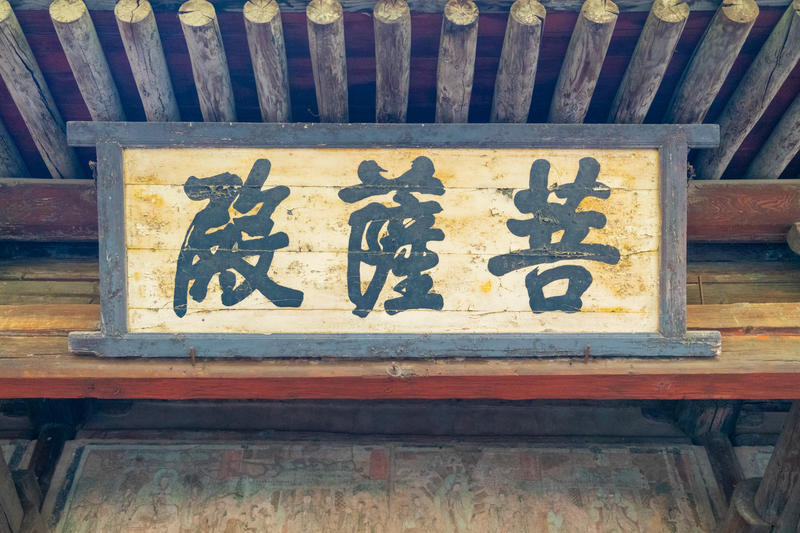 菩薩殿